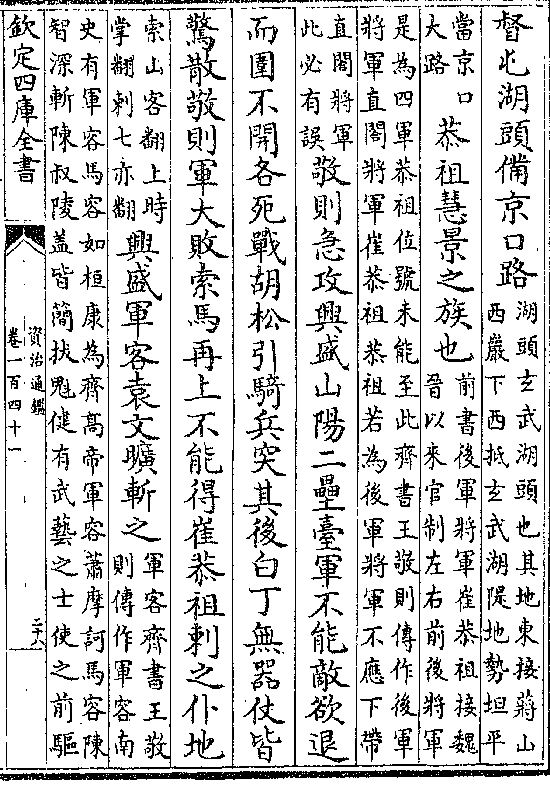 督屯湖頭備京口路湖頭玄武湖頭也其地東接蔣山
西巖下西抵玄武湖隄地勢坦平
當京口
大路恭祖慧景之族也前書後軍將軍崔恭祖接魏
晉以來官制左右前後將軍
是為四軍恭祖位號未能至此齊書王敬則傳作後軍
將軍直閤將軍崔恭祖恭祖若為後軍將軍不應下帶
直閤將軍
此必有誤敬則急攻興盛山陽二壘臺軍不能敵欲退
而圍不開各死戰胡松引騎兵突其後白丁無器仗皆
驚散敬則軍大敗索馬再上不能得崔恭祖刺之仆地
索山客翻上時
掌翻刺七亦翻興盛軍客袁文曠斬之軍客齊書王敬
則傳作軍客南
史有軍容馬容如桓康為齊高帝軍容蕭摩訶馬容陳
智深斬陳叔陵蓋皆簡拔魁健有武藝之士使之前驅
欽定四庫全書
資治通鑑
卷一百四十一
二十八